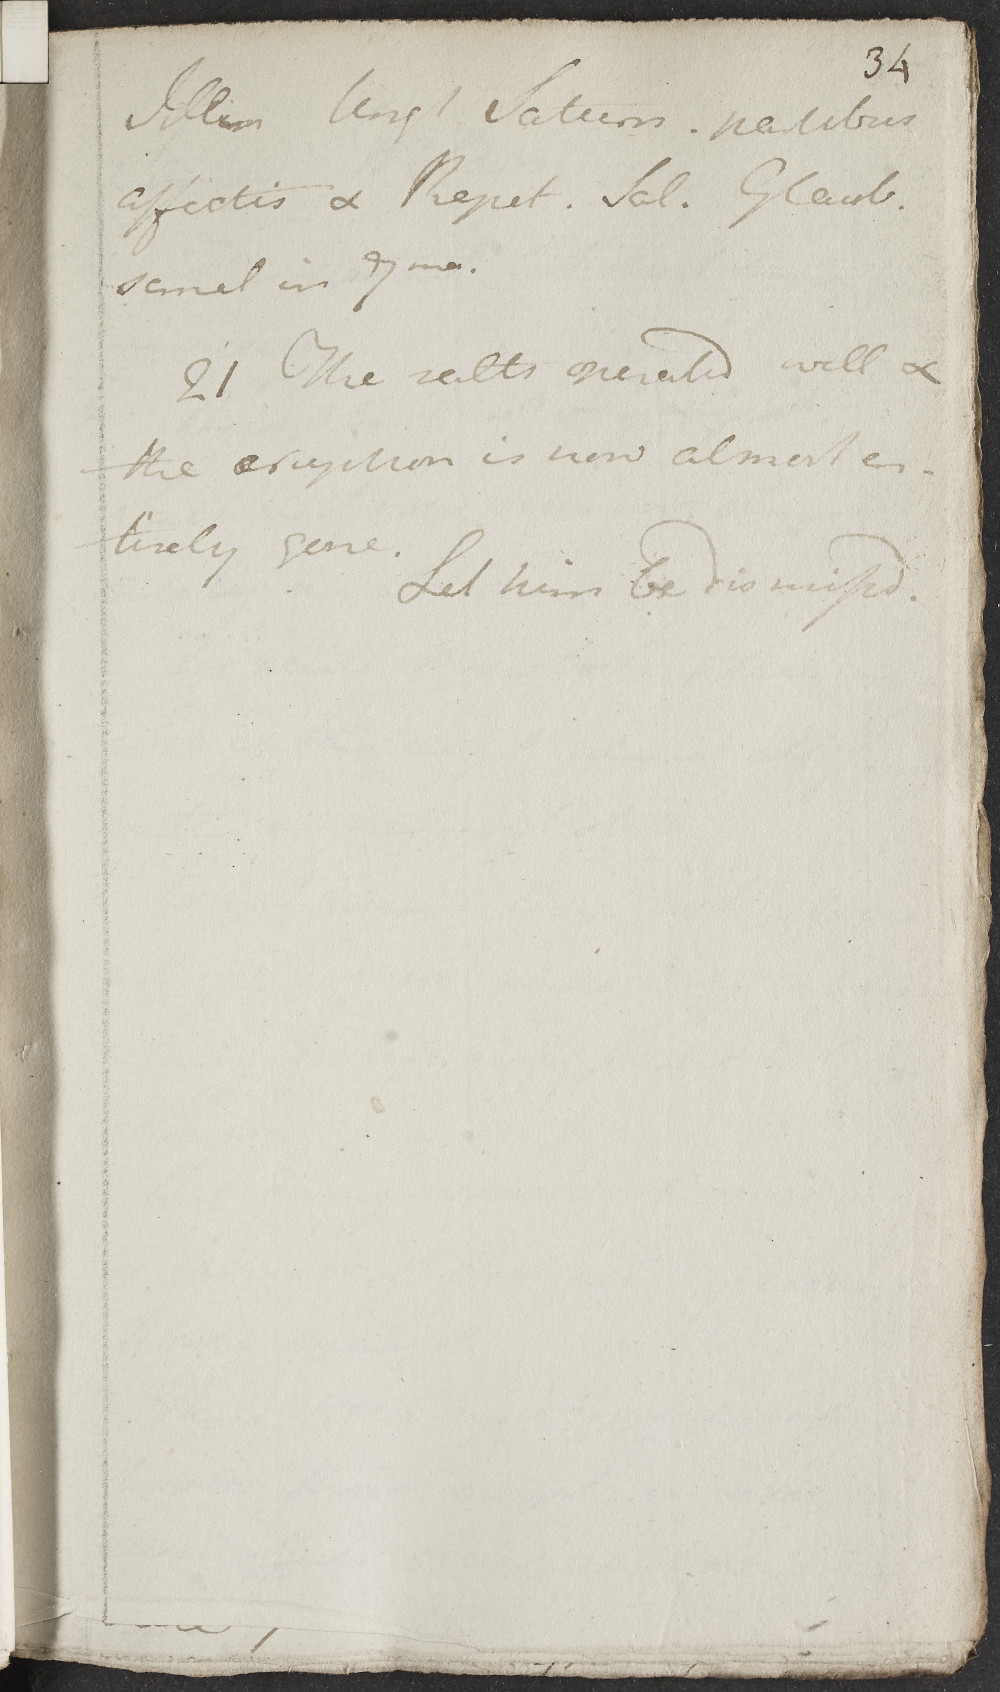 34
Illin Ungt Saturn. partibus
affectis & Repet. Sal. Glaub.
semel in 7ma.
21 The salts operated well &
the eruption is now almost en-
tirely gone.
Let him be dismissd.